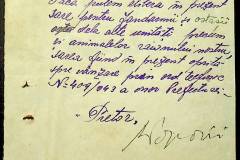 Dacă putem elibera în prezent
sare pentru jandarmii și ostașii
celor dela alte unități precum
și animalelor răsăritului nostru,
sarea fiind în prezent oprită
spre vânzare prin ord. telefonic
No 409/943 a onor Prefecturei.-
"Pretor,